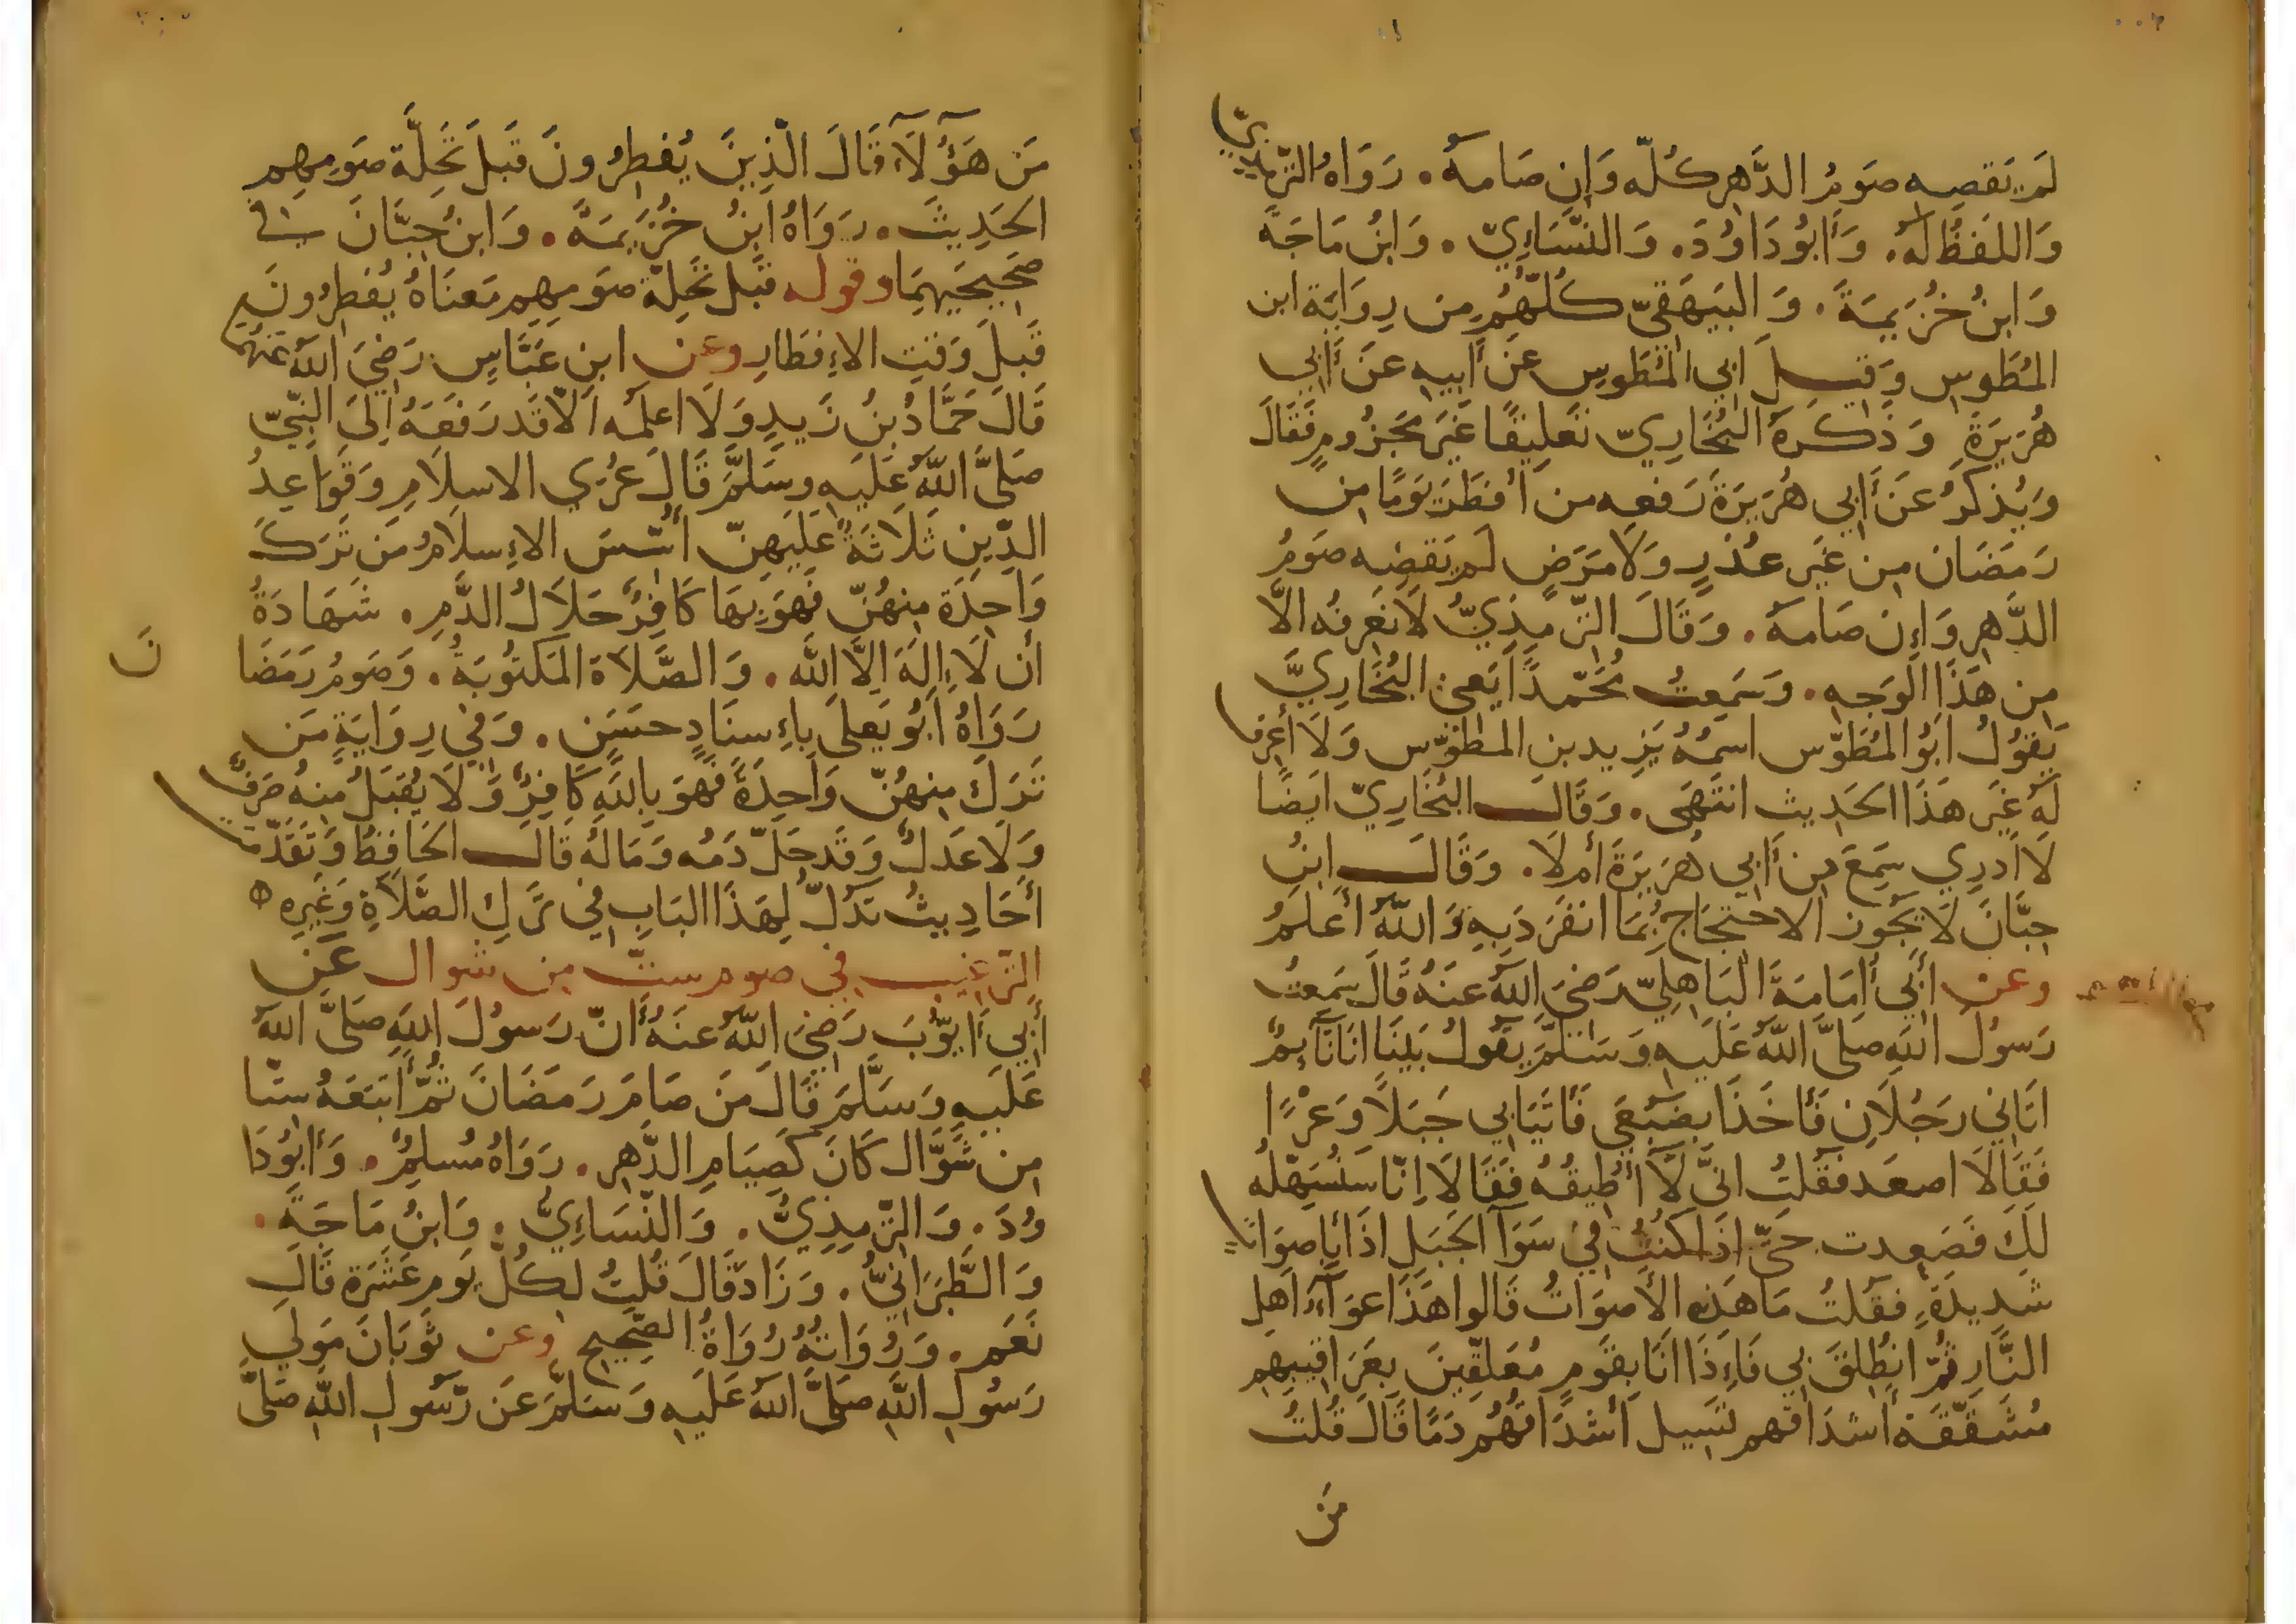 لَم يَقضِه صَومُ الدَّهرِ كُلّه وَإِن صَامَهُ. رَوَاهُ التِّرمِذِيّ
وَاللفظُ لَهُ. وَأَبُو دَاوُدَ. وَالنَّسَاءِيّ. وَابنُ مَاجَة
وَابنُ خُزَيمَةَ. وَالبَيهَقِيّ كُلّهُم مِن رِوَايَة ابن
المُطَوِس وَقِيلَ ابي المُطَوِس عَن أَبيِه عَن أَبي
هُرَيرَةَ وَذَكَرَهُ البُخَارِيّ تَعلِيقًا غَيرَ مَجزُومٍ فَقَالَ
وَيُذكَرُ عَن أَبي هُرَيرَةَ رَفعه من أَفطَرَ يَومًا مِن
رَمَضَان مِن غَير عُذرٍ وَلَا مَرَضٍ لَم يَقضِه صَومُ
الدَّهرِ وَإِن صَامَهُ. وَقَالَ التِّرمِذِيُّ لَا نَعرِفُه الاّ
مِن هَذَا الوَجهِ. وَسَمِعتُ مُحَمّدًا يَعني البُخَارِيَّ
يَقوُلُ ابُو المُطَوّس اسمُهُ يَزِيد بن المطوّس وَلَا أعرِف
لَهُ غَيرَ هَذَا الحَدِيث انتَهَى. وَقَالَ البُخَارِيّ ايضًا
لَا أَدرِي سَمِعَ مِن أَبي هُرَيرَةَ أم لَا. وَقَالَ ابنُ
حِبَّانَ لَا يَجُوز الاحتِجَاجُ بِمَا انفَرَدَ بِهِ وَاللّهُ أَعلَمُ
وعن أَبي أُمَامَةَ البَاهِلِيّ رَضيَ اللّهُ عَنهُ قَالَ سَمِعتُ
رَسُولَ اللّهِ صَلَّى اللّهُ عَلَيهِ وَسَلَّمَ يَقُولُ بَينَا انَا نَآيِمٌ
اتَاني رَجُلَانِ فَأَخَذَا بِضَبُعَي فَأتَيَا بي جَبَلًا وَعرًا
فَقَالَا اصعَد فَقُلتُ انيِّ لَآ أُطِيقُهُ فَقَالَا إنّا سَنُسَهِّلُه
لَكَ فَصَعِدت حَتيّ اذَا كُنتُ في سَوَآ الجَبَلِ اذَا بِأَصوَاتٍ
شَدِيدَةٍ فقُلتُ مَا هَذِه الأَصوَاتُ قَالوا هَذَا عوَآءُ اَهلِ
النَّارِ ثُمَّ انطُلِقَ بي فَاءِذَا انَا بِقَومٍ مُعَلَّقِينَ بِعَرَاقيبهِم
مُشَقَّقَة أَشدَاقهم تَسِيل أَشدَاقُهُم دَمًا قَالَ قُلتُ
مَن
مَن هَؤُلَآءِ قَالَ الّذِينَ يُفطِرُونَ قَبلَ تَحِلَّة صَومِهِم
الحَدِيثَ. رَوَاهُ ابنُ خُزَيمَةَ. وَابنُ حِبَّانَ في
صَحِيحَيهِمَا وقوله قَبلَ تَحِلّة صَومِهِم مَعنَاهُ يُفطِرُونَ
قَبلَ وَقتِ الاءِفطَارِ وعن ابنِ عَبَّاسٍ رَضيَ اللّهُ عَنهُمَا
قَالَ حَمَّادُ بنُ زَيدٍ وَلَا اعلَمُه الاّ قَد رَفَعَهُ اِلىَ النّبيّ
صَلَّى اللّهُ عَلَيهِ وسَلَّمَ قَالَ عُرَي الاسلَامِ وَقَوَاعِدُ
الدّين ثَلَاثَةٌ عَلَيهِنّ أُسِّسَ الاءِسلَامُ مَن تَرَكَ
وَاحِدَة مِنهُنّ فَهوَ بِهَا كَافِرٌ حَلَالُ الدَّمِ. شَهَادَةُ
أن لَا إِلَهَ إلَّا اللّه. وَالصَّلَاة المَكتُوبَةُ. وَصَومُ رَمَضَا
نَ
رَوَاهُ أَبُو يَعلَى بِاءِسنَادٍ حسَنٍ. وَفي رِوَايَةٍ مَن
تَرَكَ مِنهُنّ وَاحِدَةً فَهوَ بِاللّهِ كَافِرٌ وَلَا يُقبَلُ مِنهُ صَرفٌ
وَلَا عَدلٌ وَقَد حَلّ دَمُه وَمَالُهُ قَالَ الحَافِظُ وَتَقَدّمَت
أَحَادِيثُ تَدُلّ لِهَذَا البَابِ في تَركِ الصَّلَاةِ وَغَيرِه
التّرغيب في صوم ستّ من شوال عَن
أَبي أَيّوُبَ رَضيَ اللّهُ عنهُ أَنّ رَسوُلَ اللّهِ صَلَّى اللّهُ
عَلَيهِ وَسَلَّمَ قَالَ مَن صَامَ رَمَضَانَ ثُمّ أتبَعَهُ ستّا
مِن شَوَّال كَانَ كَصِيَامِ الدَّهرِ. رَوَاهُ مُسلِمٌ. وَأَبُو دَا
وُدَ. وَالتِّرمِذِيُّ. وَالنّسَاءِيُّ. وَابنُ مَاجَة.
وَالطَّبَرَانيُّ. وَزَادَ قَالَ قُلتُ لِكُلّ يَومٍ عَشَرَة قَالَ
نَعَم. وَرُوَاتُهُ رُوَاةُ الصّحِيح وعن ثَوبَانَ مَولي
رَسُولِ اللّهِ صَلَّى اللّهُ عَلَيهِ وَسَلَّمَ عَن رّسُولِ اللّهِ صَلَّى